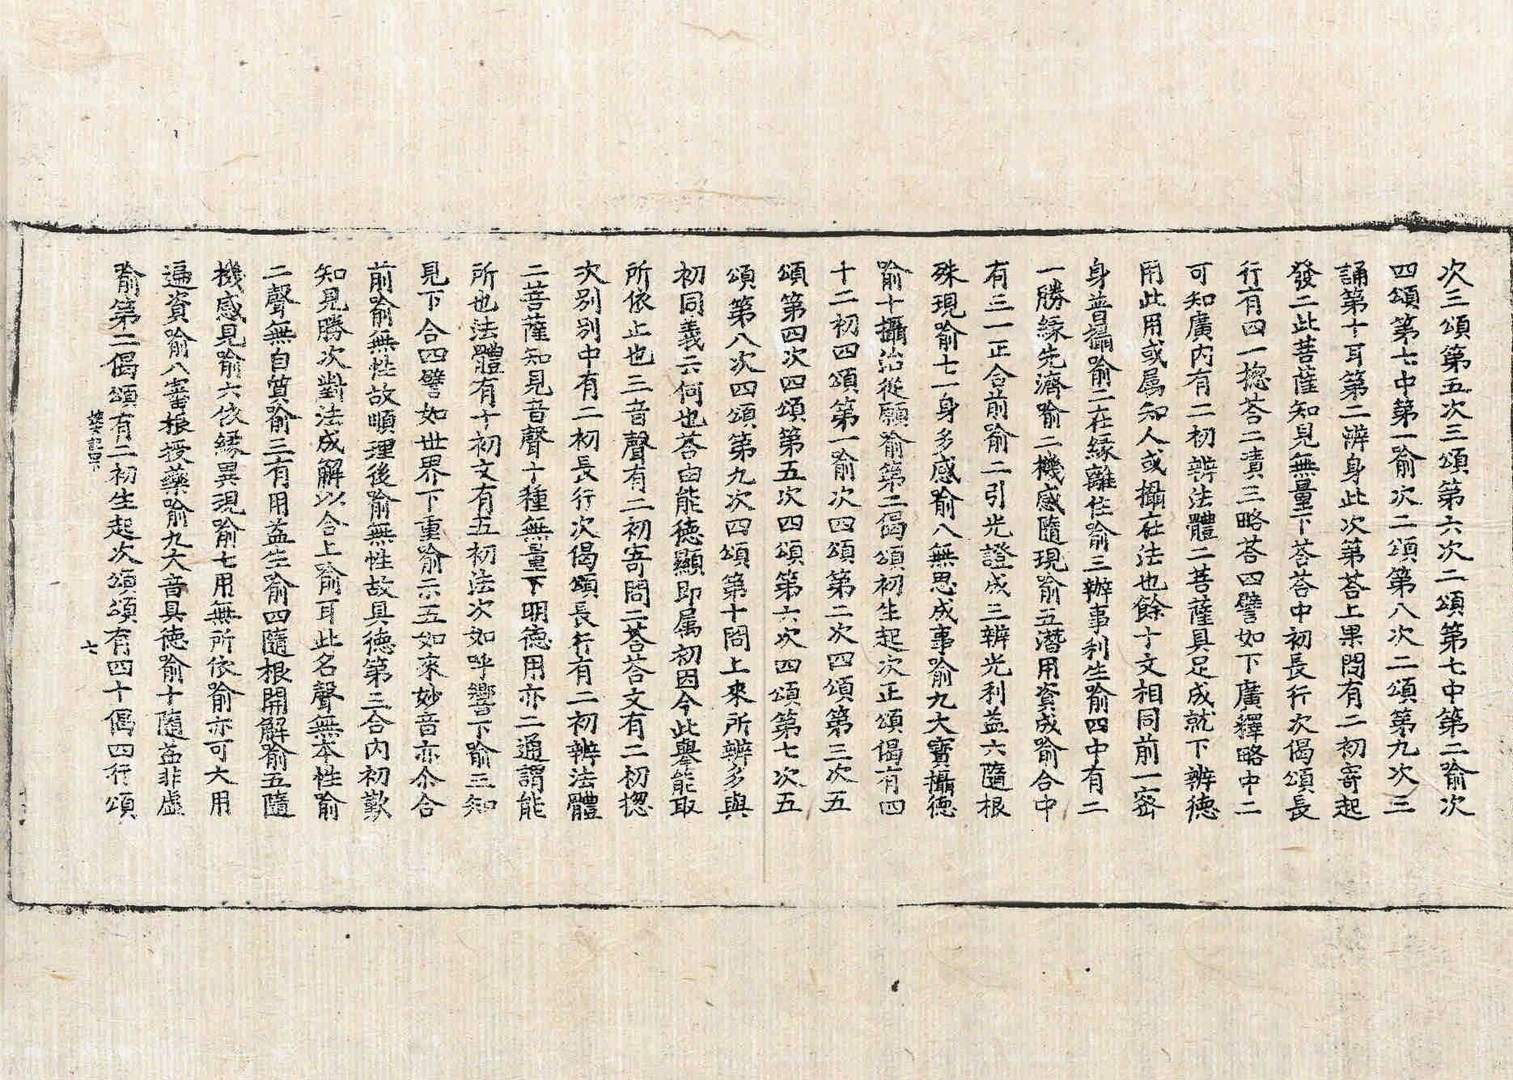 次三頌第五次三頌第六次二頌第七中第二喻次
四頌第七中第一喻次二頌第八次二頌第九次三
誦第十耳第二辨身此次第荅上果問有二初寄起
發二此菩薩知見無量下荅荅中初長行次偈頌長
行有四一揔荅二責三略荅四譬如下廣釋略中二
可知廣内有二初辨法體二菩薩具足成就下辨德
用此用或属知人或攝在法也餘十文相同前一密
身普攝喻二在縁離住喻三辦事利生喻四中有二
一勝縁先濟喻二機感隨現喻五潛用資成喻合中
有三一正合前喻二引光證成三辨光利益六隨根
殊現喻七一身多感喻八無思成事喻九大寳攝德
喻十攝治從願喻第二偈頌初生起次正頌偈有四
十二初四頌第一喻次四頌第二次四頌第三次五
頌第四次四頌第五次四頌第六次四頌第七次五
頌第八次四頌第九次四頌第十問上來所辨多與
初同義云何也荅由能德顯即属初因今此舉能取
所依止也三音聲有二初寄問二荅荅文有二初揔
次别别中有二初長行次偈頌長行有二初辨法體
二菩薩知見音聲十種無量下明德用亦二通謂能
所也法體有十初文有五初法次如呼響下喻三知
見下合四譬如世界下重喻示五如來妙音亦尒合
前喻無性故順理後喻無性故具德第三合内初歎
知見勝次對法成解以合上喻耳此名聲無本性喻
二聲無自質喻三有用益生喻四隨根開解喻五隨
機感見喻六依縁異現喻七用無所依喻亦可大用
遍資喻八審根授藥喻九大音具德喻十隨益非虚
喻第二偈頌有二初生起次頌頌有四十偈四行頌
七